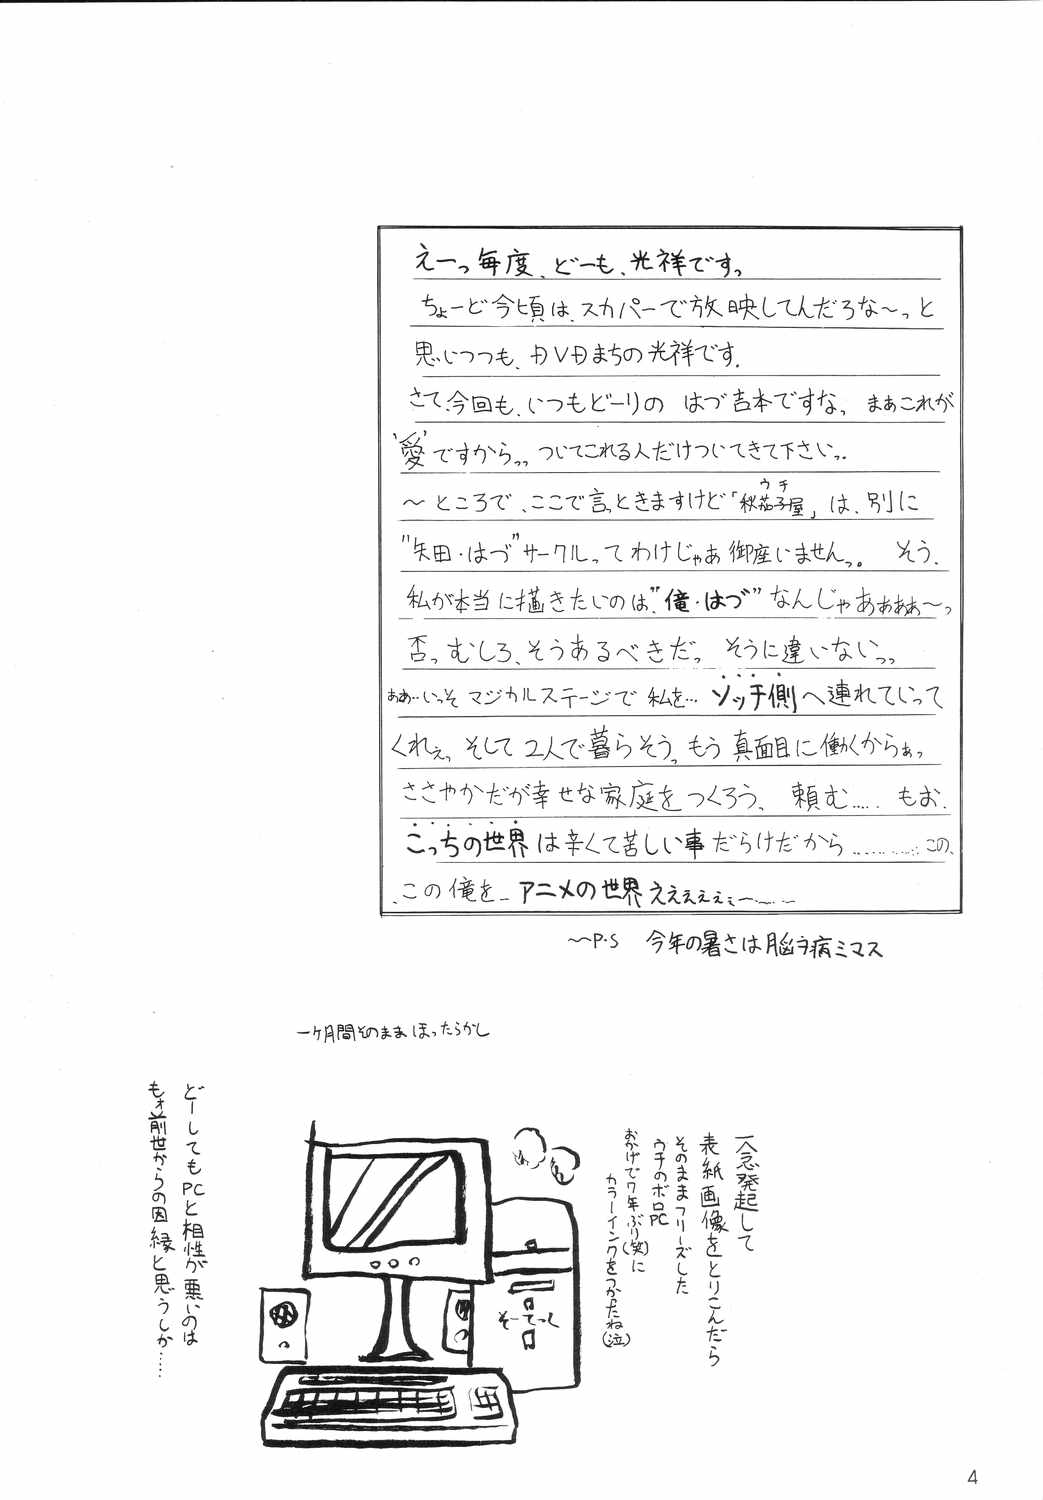 えーっ毎度、どーも、光祥ですっ
ちょーど今頃は、スカパーで放映してんだろな〜っと
思いつつも、DVDまちの光祥です。
さて、今回も、いつもどーりの はづ吉本ですなっ まぁこれが
'愛'ですからっっ ついてこれる人だけついてきて下さいっ.
〜ところで、ここで言っときますけど「秋茄子屋」は、別に
ウチ
"矢田・はづ"サークルってわけじゃあ御座いませんっ。 そう、
私が本当に描きたいのは、"俺・はづ"なんじゃあぁぁぁぁ〜っ
否っ むしろ、そうあるべきだっ そうに違いないっっ
ああ…いっそ マジカルステージで 私を… ソッチ側へ連れていって
くれぇっ そして 2人で暮らそうっ もう 真面目に働くからぁっ
ささやかだが幸せな家庭をつくろう、 頼む…… もお、
こっちの世界は辛くて苦しい事だらけだから………… この、
この俺を… アニメの世界えええぇぇぇ〜……
〜P.S 今年の暑さは脳ヲ病ミマス
一ヶ月間そのままほったらかし
一念発起して
表紙画像をとりこんだら
そのままフリーズした
ウチのボロPC
おかげで7年ぶり(笑)に
カラーインクをつかったね(泣)
そーてっく
どーしてもPCと相性が悪いのは
もォ前世からの因縁と思うしか……
4